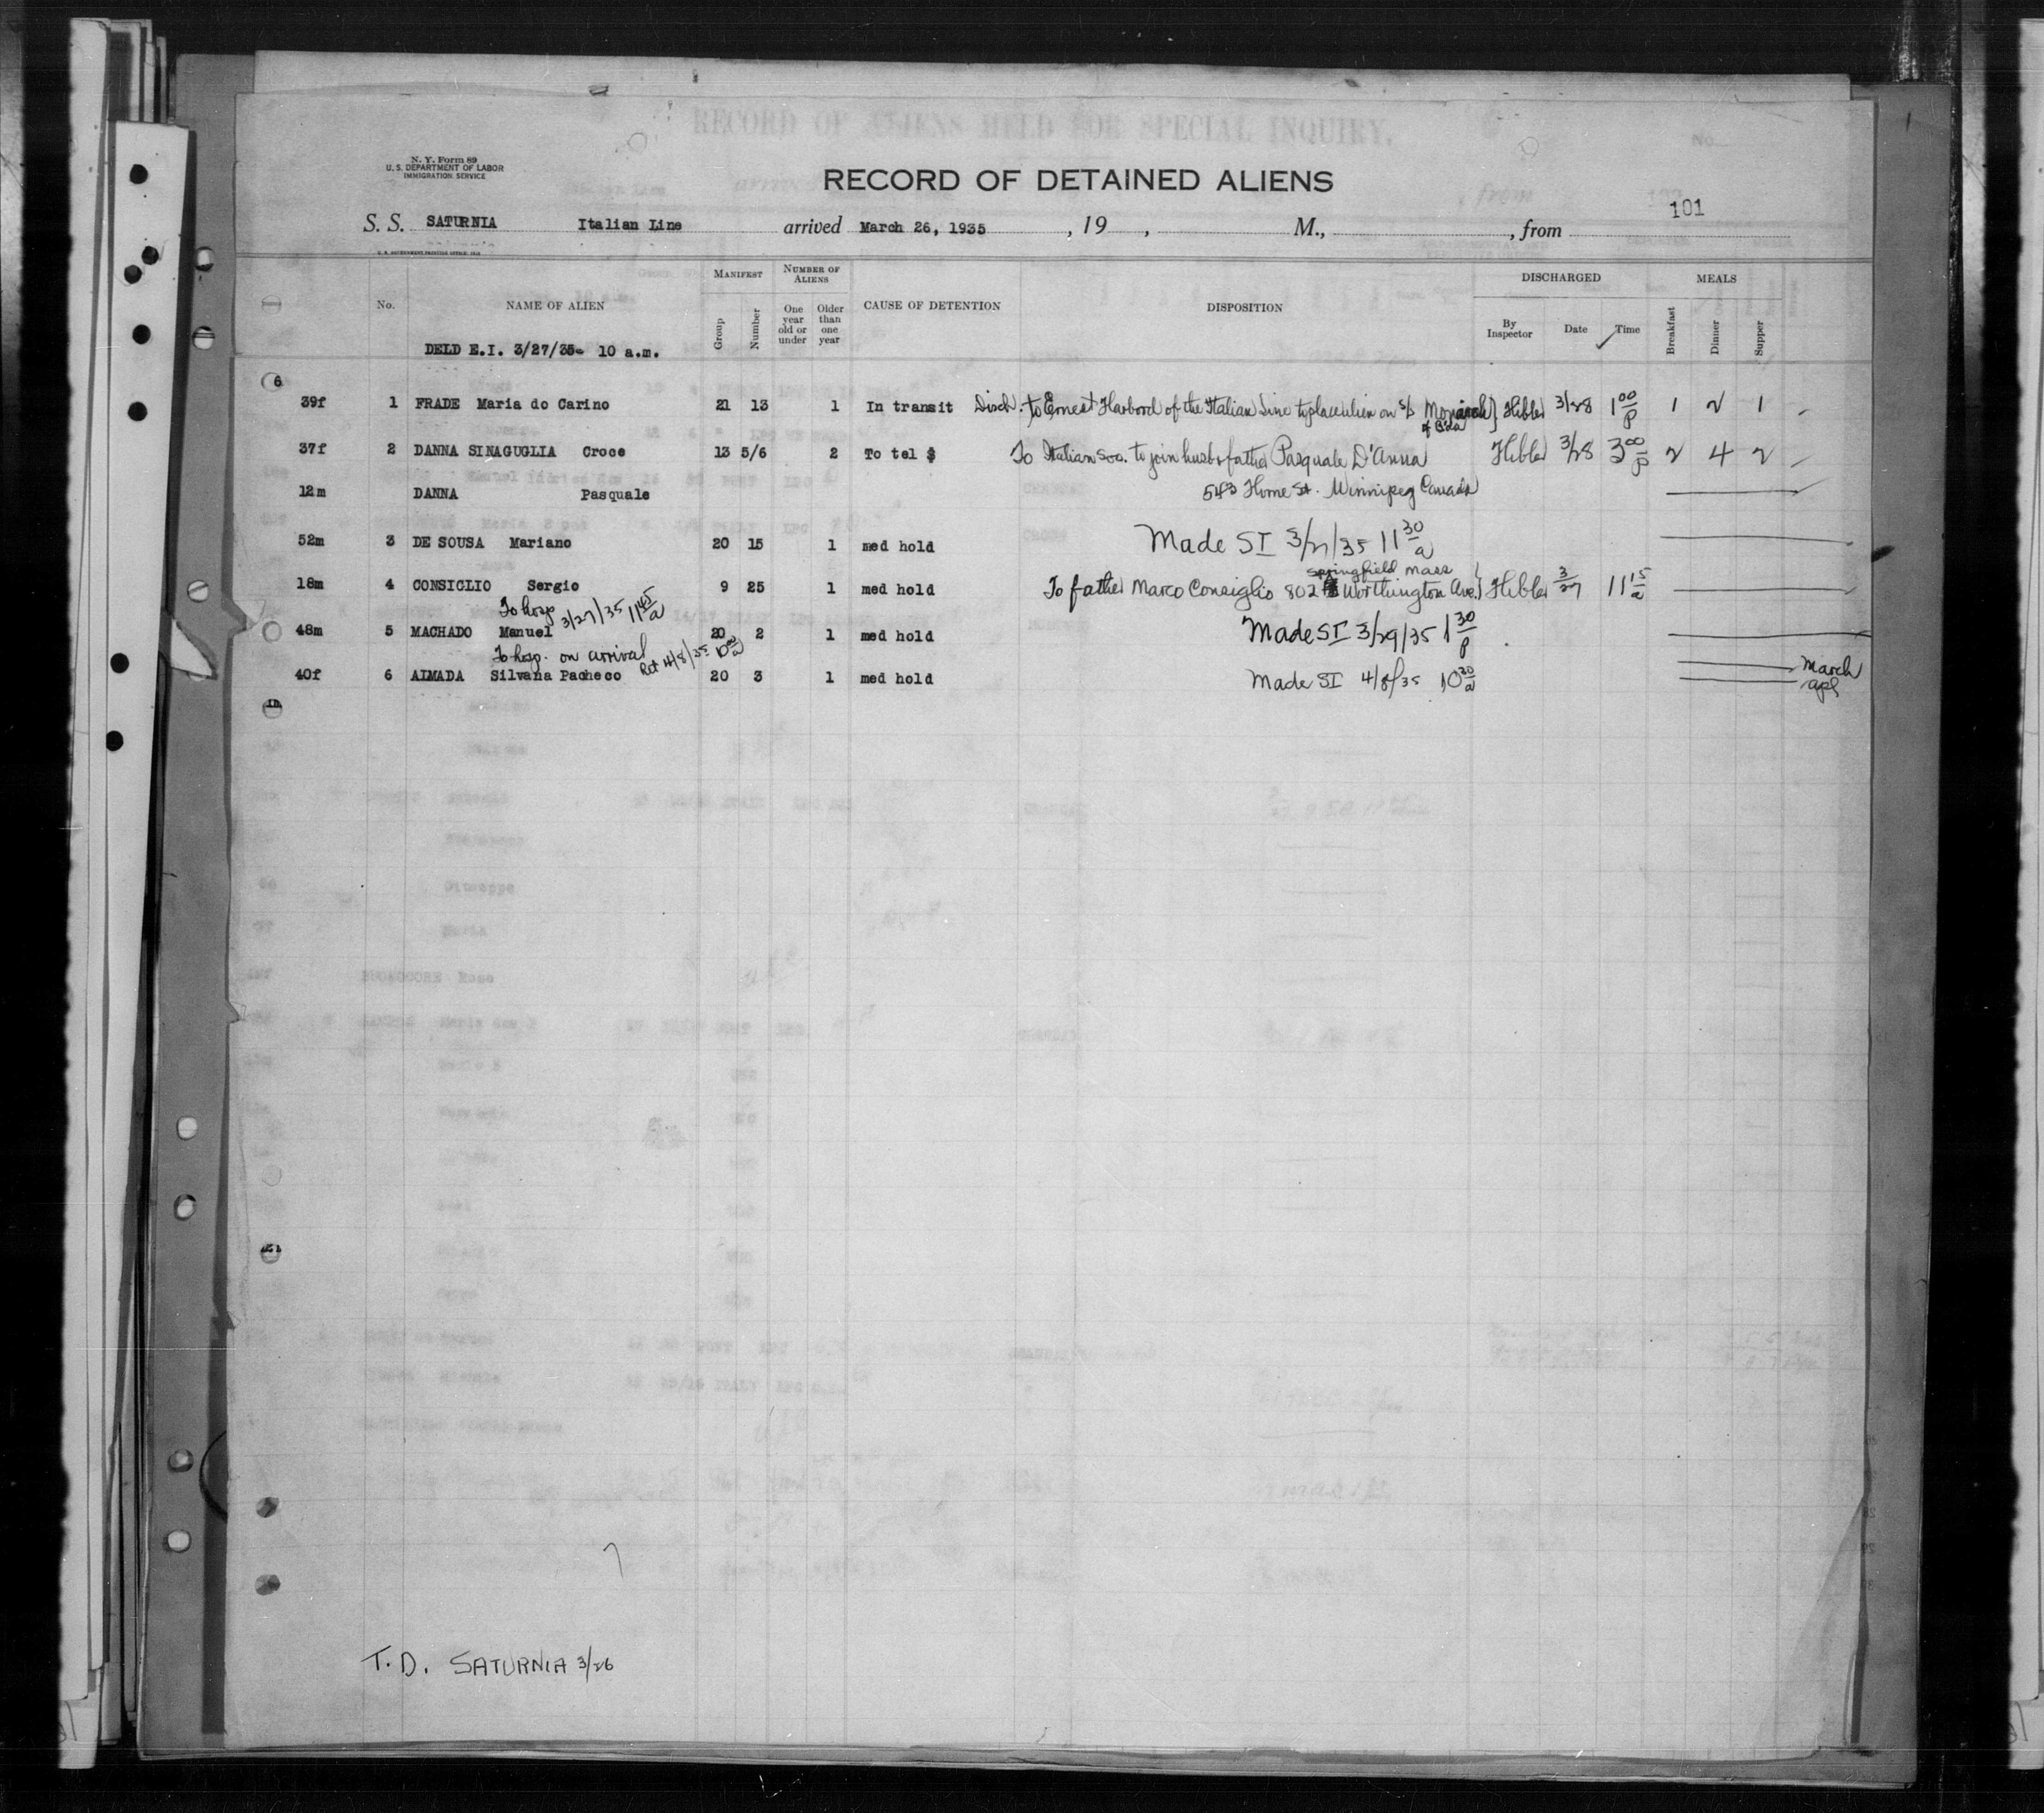 N. Y. Form 89
U. S. DEPARTMENT OF LABOR
IMMIGRATION SERVICE
RECORD OF ALIENS HELD FOR SPECIAL INQUIRY.
RECORD OF DETAINED ALIENS
101
S. S. SATURNIA Italian Line arrived March 26, 1935 , 19 , M., , from
No. NAME OF ALIEN MANIFEST Group Number NUMBER OF ALIENS One year old or under Older than one year CAUSE OF DETENTION DISPOSITION DISCHARGED By Inspector Date Time MEALS Breakfast Dinner Supper
DELD E.I. 3/27/35- 10 a.m.
6
39f 1 FRADE Maria do Carino 21 13 1 In transit Disch. to Ernest Harbord of the Italian Line to place alien on S/S Monarch of B'da } Hibler 3/28 1 00/P 1 2 1
37f 2 DANNA SINAGUGLIA Croce 13 5/6 2 To tel $ To Italian Soc. to join husb & father Pasquale D'Anna Hibler 3/28 3 00/P 2 4 2
12m DANNA Pasquale 543 Home St. Winnipeg Canada
52m 3 DE SOUSA Mariano 20 15 1 med hold Made SI 3/27/35 11 30/a
Springfield Mass
18m 4 CONSIGLIO Sergio 9 25 1 med hold To father Marco Consiglio 802 Worthington Ave. } Hibler 3/27 11 15/a
To hosp 3/27/35 11 45/a
48m 5 MACHADO Manuel 20 2 1 med hold Made SI 3/29/35 1 30/P
To hosp. on arrival Ret 4/8/35 10 00/a
40f 6 ALMADA Silvana Pacheco 20 3 1 med hold Made SI 4/8/35 10 30/a March
apl
T.D. SATURNIA 3/26